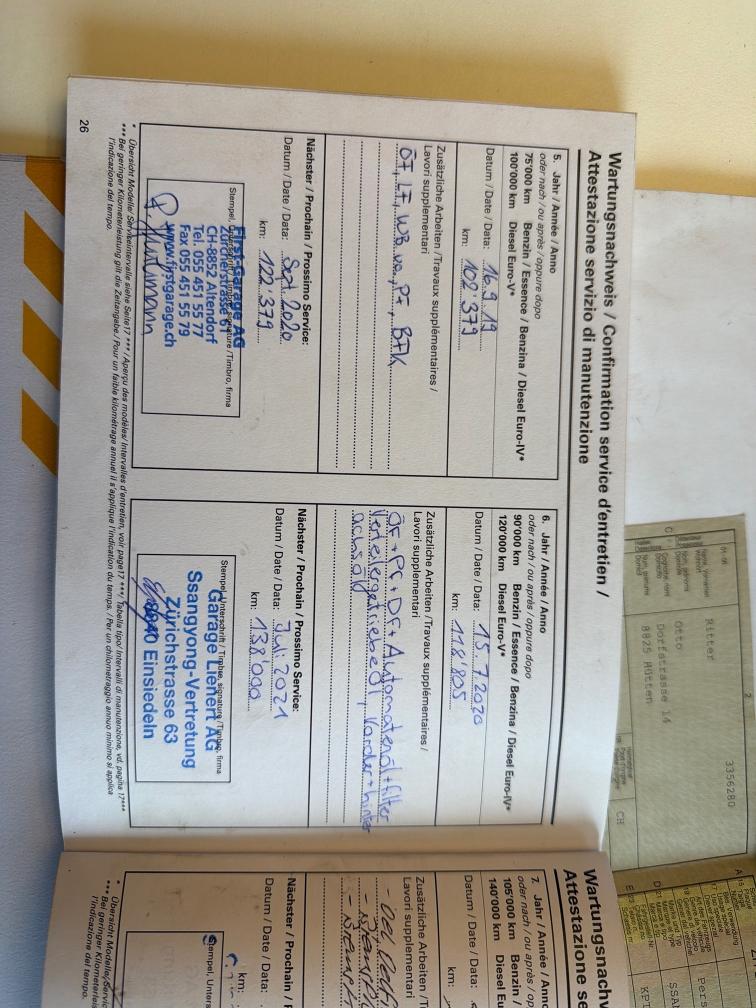 Wartungsnachweis / Confirmation service d'entretien /
Attestazione servizio di manutenzione
5. Jahr / Année / Anno
oder nach / ou après / oppure dopo
75'000 km Benzin / Essence / Benzina / Diesel Euro-IV*
100'000 km Diesel Euro-V*
Datum / Date / Data: 16.9.19
km: 102'379
Zusätzliche Arbeiten / Travaux supplémentaires /
Lavori supplementari
ÖF, LF, WB, PF, BFK
Nächster / Prochain / Prossimo Service:
Datum / Date / Data: Sept. 2020
km: 122'379
Stempel, Unterschrift / Timbre, signature / Timbro, firma
First Garage AG
Zürcherstrasse 67
CH-8852 Altendorf
Tel. 055 451 55 77
Fax 055 451 55 79
www.firstgarage.ch
6. Jahr / Année / Anno
oder nach / ou après / oppure dopo
90'000 km Benzin / Essence / Benzina / Diesel Euro-IV*
120'000 km Diesel Euro-V*
Datum / Date / Data: 15.7.2020
km: 118'805
Zusätzliche Arbeiten / Travaux supplémentaires /
Lavori supplementari
ÖF + PF + DF + Automatenöl + filter
Verteilergetriebeöl, Vorder + hinter
achsöl
Nächster / Prochain / Prossimo Service:
Datum / Date / Data: Juli 2021
km: 138'000
Stempel, Unterschrift / Timbre, signature / Timbro, firma
Garage Lienert AG
Ssangyong-Vertretung
Zürichstrasse 63
8840 Einsiedeln
* Übersicht Modelle/ Serviceintervalle siehe Seite17 *** / Aperçu des modèles/ Intervalles d'entretien, voir page17 ***/ Tabella tipo/ Intervalli di manutenzione, vd. pagina 17***
*** Bei geringer Kilometerleistung gilt die Zeitangabe./ Pour un faible kilométrage annuel il s'applique l'indication du temps. / Per un chilometraggio annuo minimo si applica
l'indicazione del tempo.
26
Wartungsnachw
Attestazione se
7. Jahr / Année / Ann
oder nach / ou après / op
105'000 km Benzin /
140'000 km Diesel E
Datum / Date / Data:
km:
Zusätzliche Arbeiten /T
Lavori supplementari
Nächster / Prochain / P
Datum / Date / Data:
km:
Stempel, Unters
* Übersicht Modelle/Servic
*** Bei geringer Kilometerleis
l'indicazione del tempo.
3356280
Ritter
Otto
Dorfstrasse 14
8825 Hütten
CH